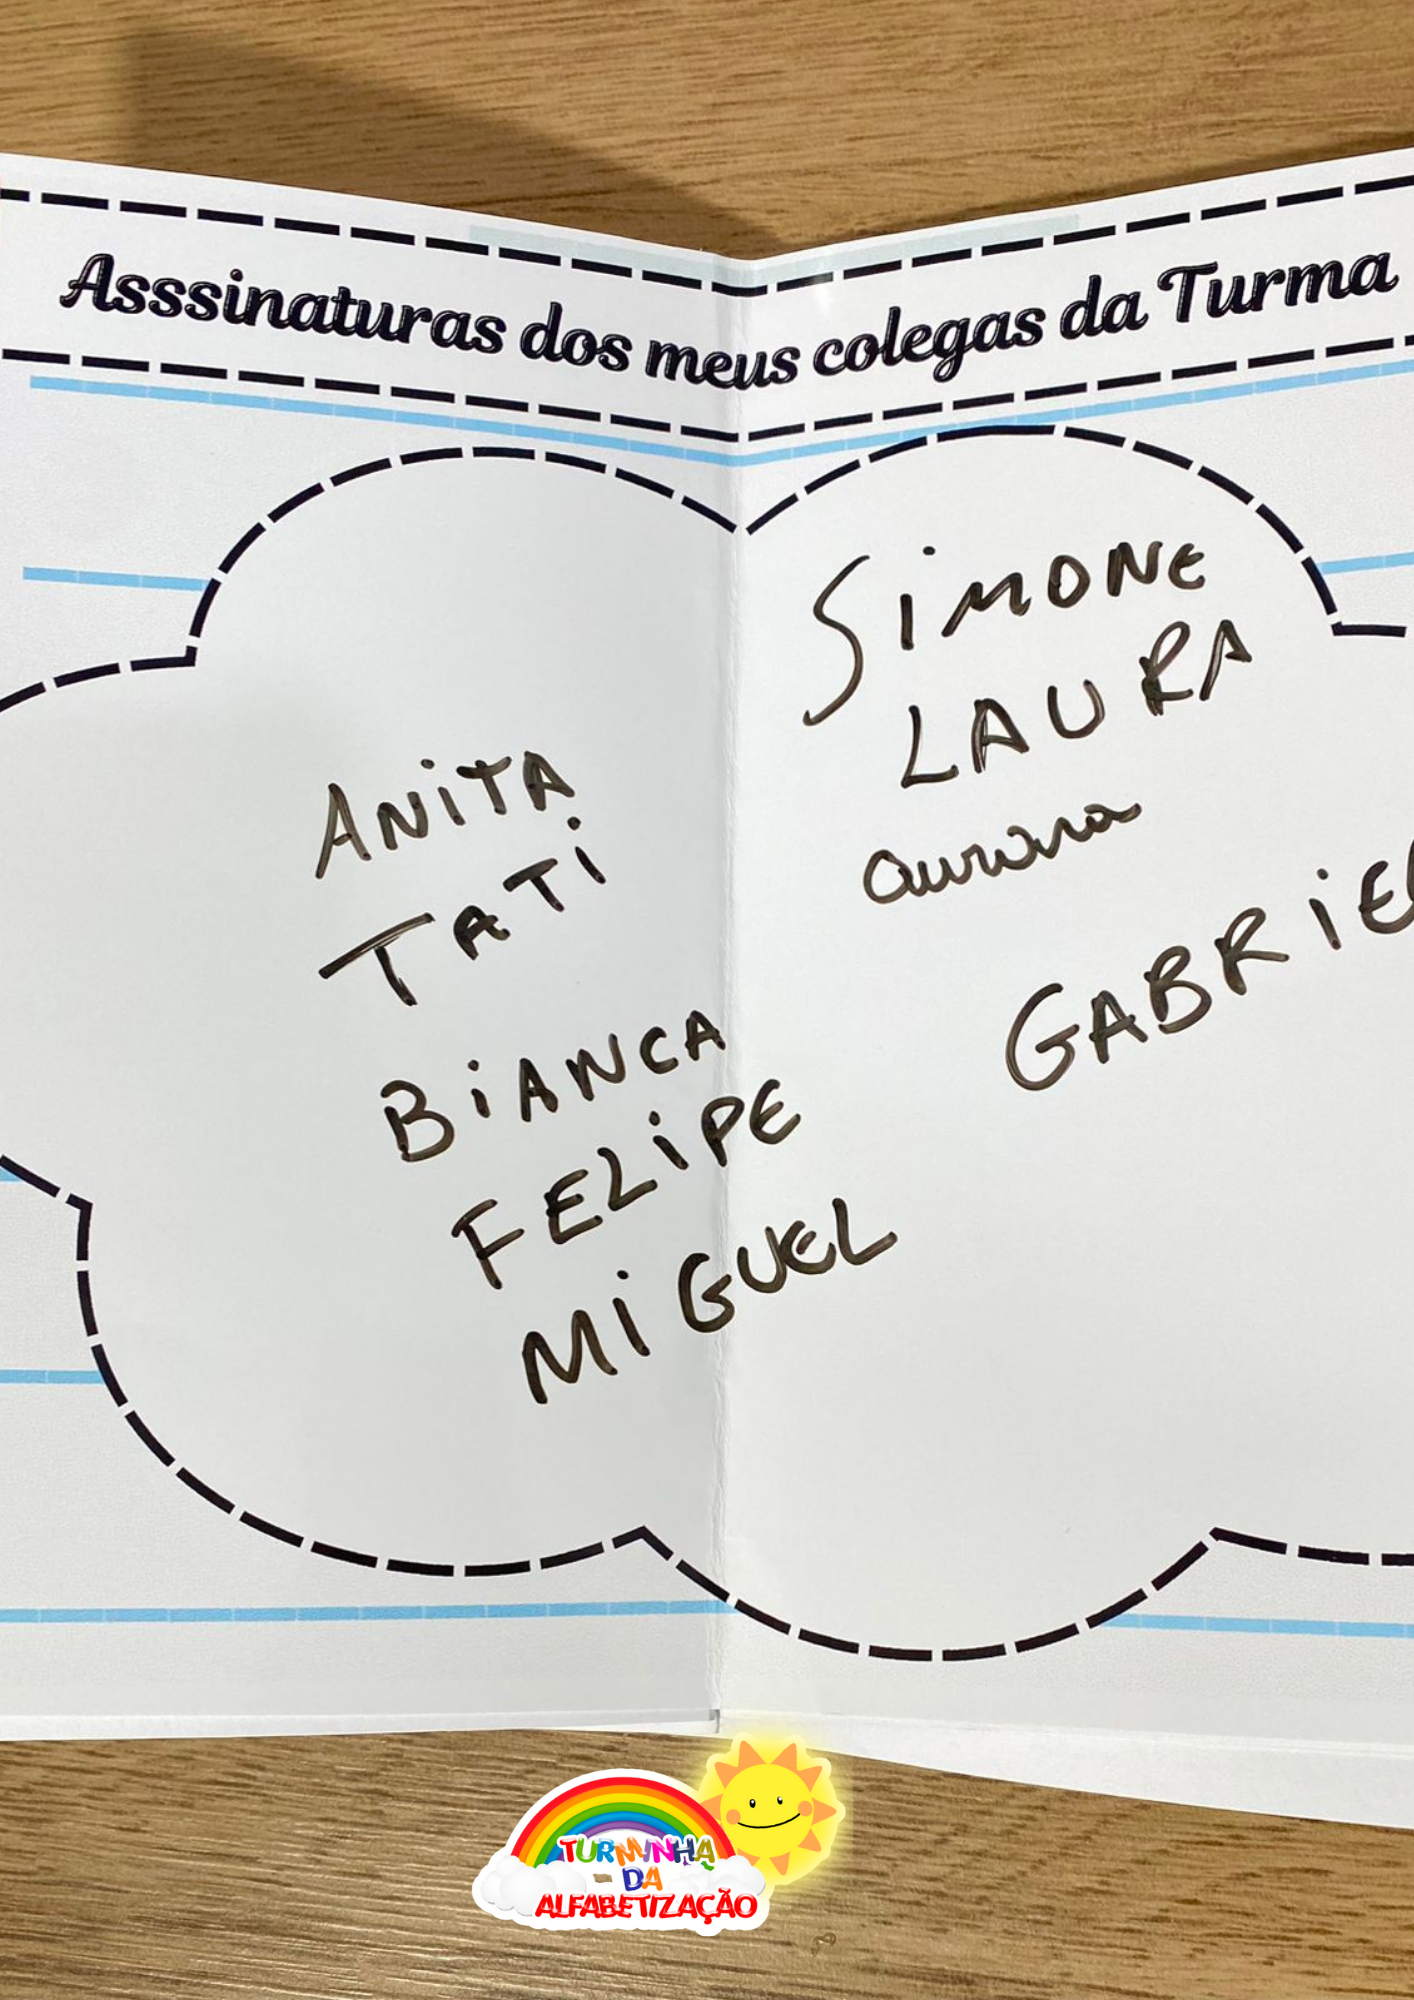 Asssinaturas dos meus colegas da Turma
ANiTA
TATi
BiANCA
FELiPE
MiGUEL
SiMONE
LAURA
aurora
GABRiEL
TURMINHA
DA
ALFABETIZAÇÃO